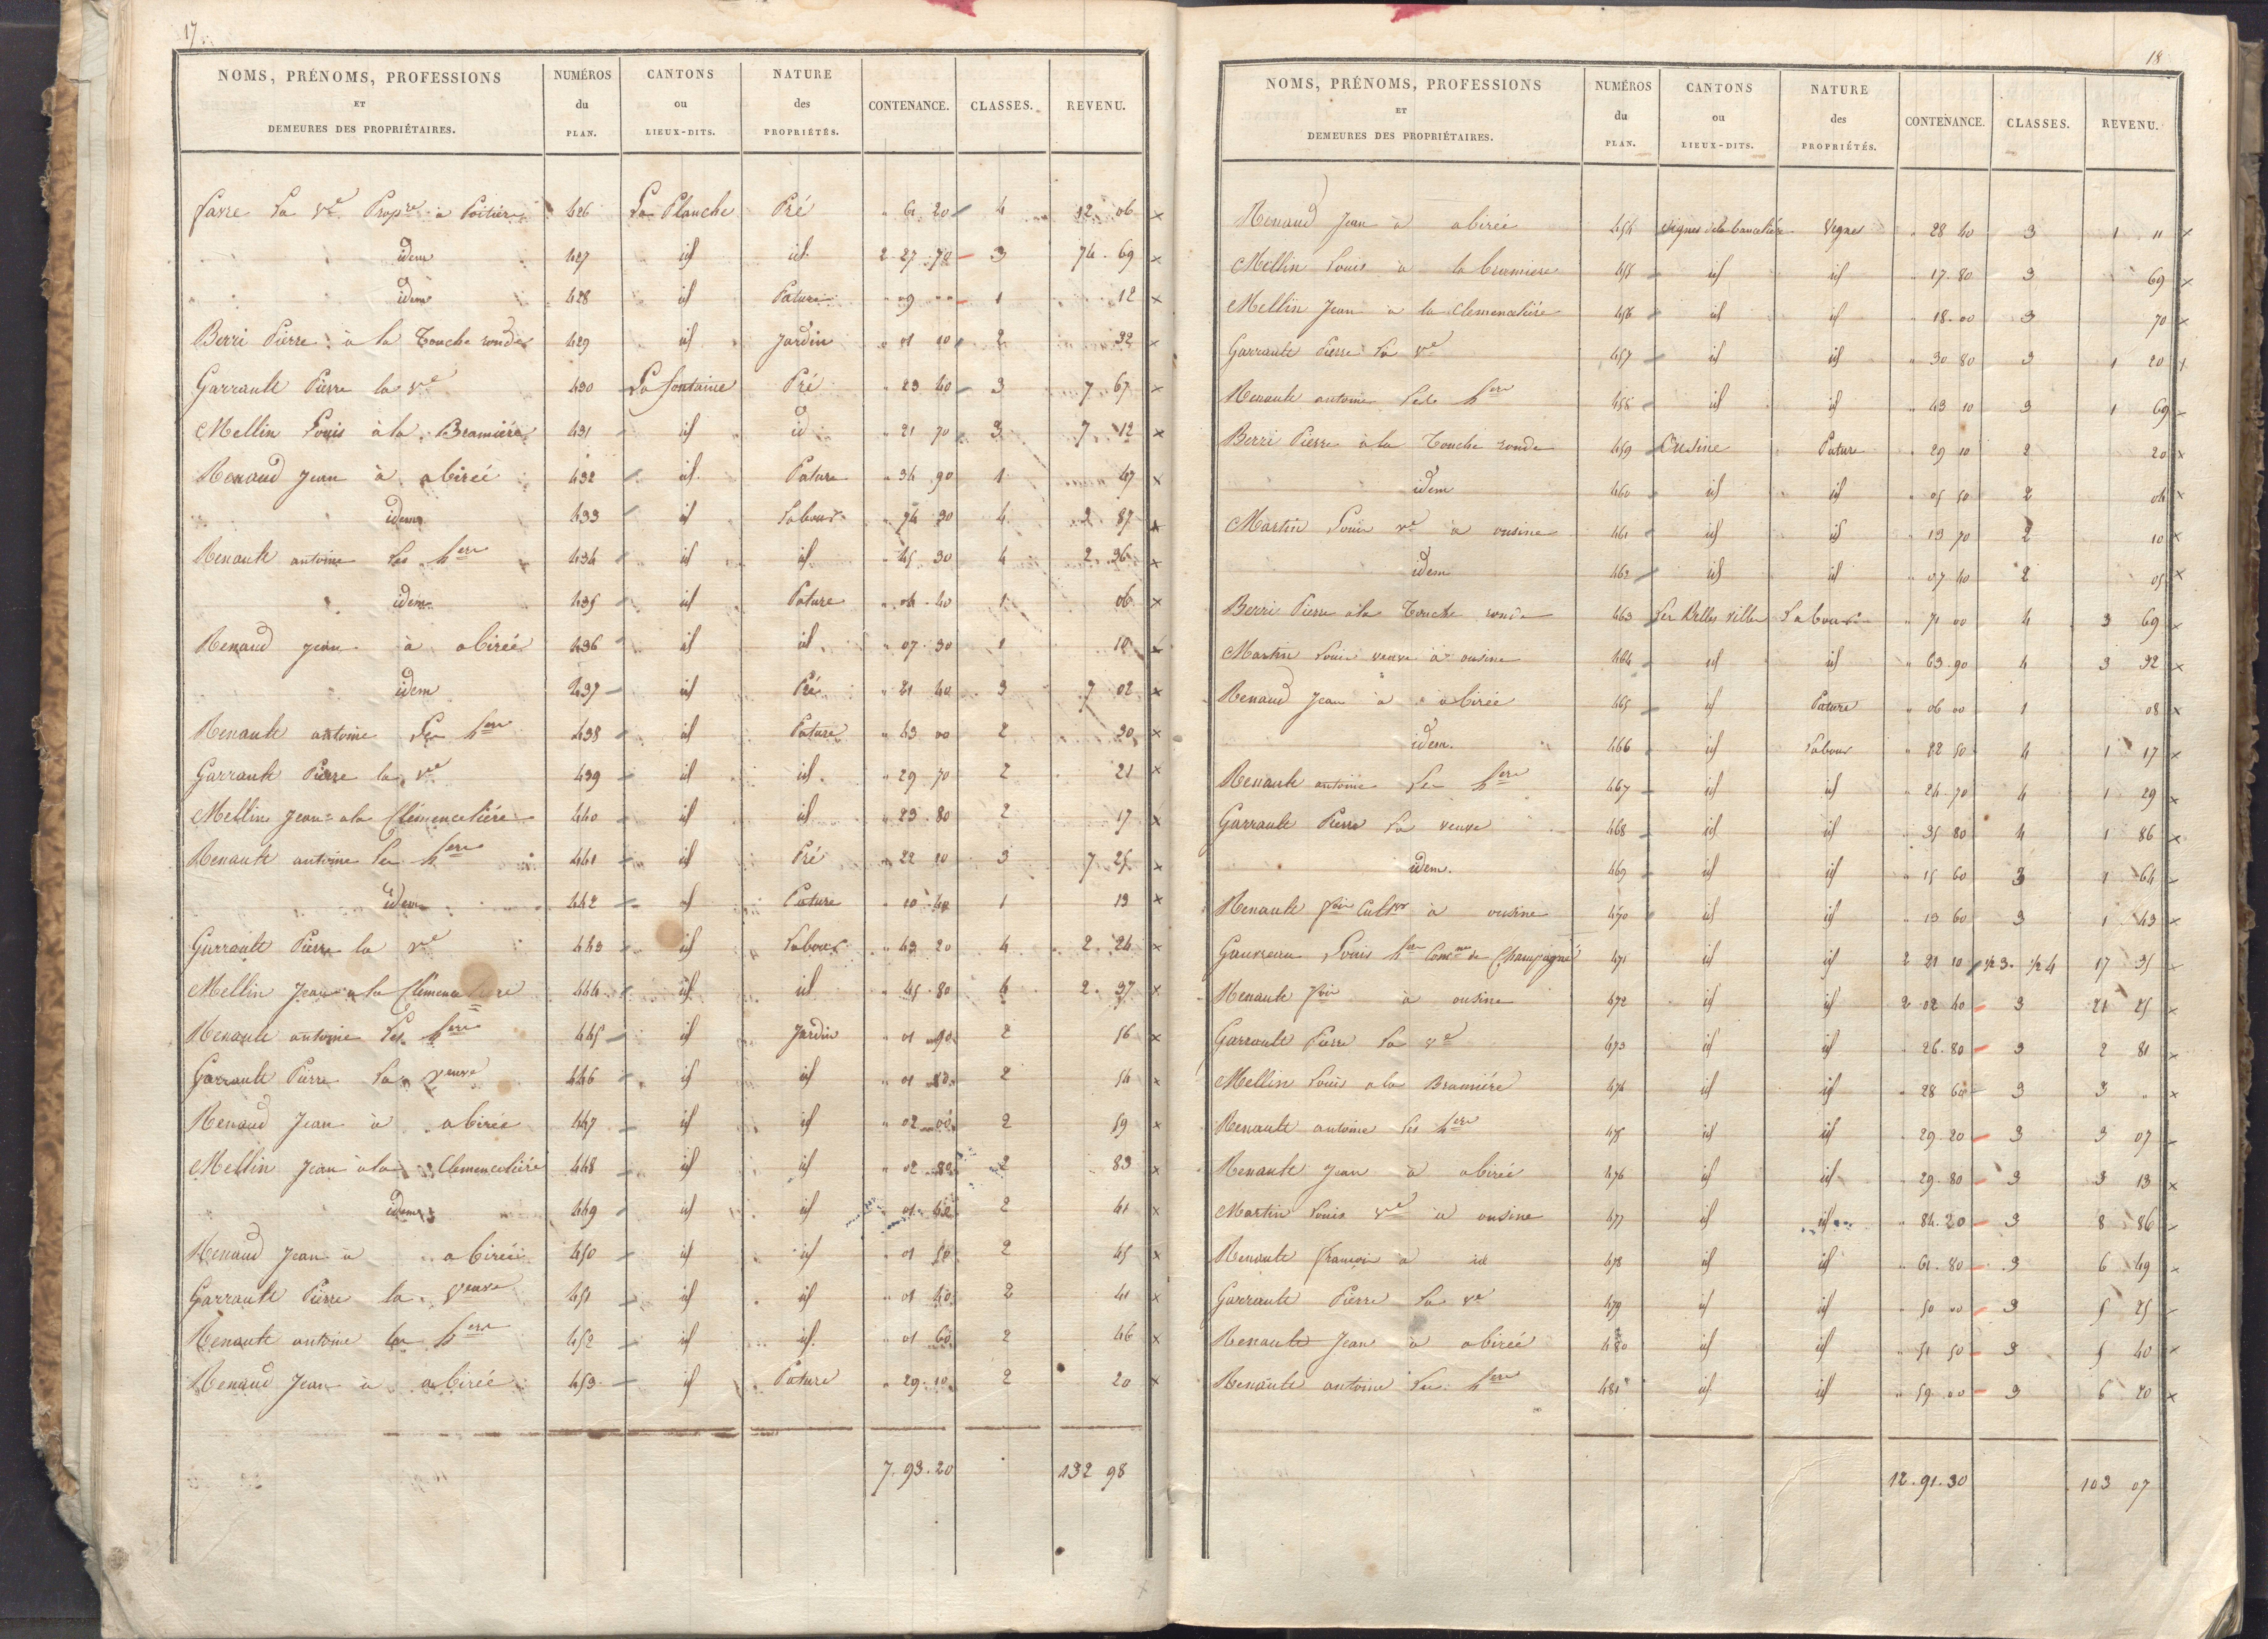 17
NOMS, PRÉNOMS, PROFESSIONS ET DEMEURES DES PROPRIÉTAIRES. NUMÉROS du PLAN. CANTONS ou LIEUX-DITS. NATURE des PROPRIÉTÉS. CONTENANCE. CLASSES. REVENU.
favre La Ve Propre à Poitiers 426 La Planche Pré " 61 20 4 12 06 x
idem 427 id id 2 27 70 3 74 69 x
idem 428 id Pature " 09 " 1 12 x
Berri Pierre à la Touche ronde 429 id Jardin " 01 10 2 32 x
Garrault Pierre la Ve 430 La fontaine Pré " 23 40 3 7 67 x
Mellin Louis à la Bramière 431 id id " 21 70 3 7 12 x
Renaud Jean à abirée 432 id Pature " 34 90 1 47 x
idem 433 id Labour " 74 30 4 3 87 x
Renault antoine Les hers 434 id id " 45 30 4 2 36 x
idem 435 id Pature " 04 40 1 06 x
Renaud Jean à abirée 436 id id " 07 30 1 10 x
idem 437 id Pré " 21 40 3 7 02 x
Renault antoine Les hers 438 id Pature " 43 00 2 30 x
Garrault Pierre la Ve 439 id id " 29 70 2 21 x
Mellin Jean à la Clémencetière 440 id id " 23 80 2 17 x
Renault antoine Les hers 441 id Pré " 22 10 3 7 25 x
idem 442 id Pature " 10 40 1 13 x
Garrault Pierre la Ve 443 id Labour " 43 20 4 2 24 x
Mellin Jean à la Clémencetière 444 id id " 45 80 4 2 37 x
Renault antoine Les hers 445 id Jardin " 01 90 2 56 x
Garrault Pierre La veuve 446 id id " 01 80 2 54 x
Renaud Jean à abirée 447 id id " 02 00 2 59 x
Mellin Jean à la Clemencetière 448 id id " 02 80 2 83 x
idem 449 id id " 01 40 2 41 x
Renaud Jean à abirée 450 id id " 01 50 2 45 x
Garrault Pierre la veuve 451 id id " 01 40 2 41 x
Renault antoine les hers 452 id id " 01 60 2 46 x
Renaud Jean à abirée 453 id Pature " 29 10 2 20 x
7 . 93 . 20 132 98
18
NOMS, PRÉNOMS, PROFESSIONS ET DEMEURES DES PROPRIÉTAIRES. NUMÉROS du PLAN. CANTONS ou LIEUX-DITS. NATURE des PROPRIÉTÉS. CONTENANCE. CLASSES. REVENU.
Renaud Jean à abirée 454 Vignes de la Vignes " 28 40 3 1 11 x
Mellin Louis à la bramiere 455 id id " 17 80 3 69 x
Mellin Jean à la Clemencetière 456 id id " 18 00 3 70 x
Garrault Pierre la Ve 457 id id " 30 80 3 1 20 x
Renault antoine Les hers 458 id id " 43 10 3 1 69 x
Berri Pierre à la Touche ronde 459 Ousine Pature " 29 10 2 20 x
idem 460 id id " 05 50 2 04 x
Martin Louis Ve à ousine 461 id id " 13 70 2 10 x
idem 462 id id " 07 40 2 05 x
Berri Pierre à la Touche ronde 463 Les Belles villes Labour " 71 00 4 3 69 x
Martin Louis veuve à ousine 464 id id " 63 90 4 3 32 x
Renaud Jean à abirée 465 id Pature " 06 00 1 08 x
idem. 466 id Labour " 22 50 4 1 17 x
Renault antoine Les hers 467 id id " 24 70 4 1 29 x
Garrault Pierre La veuve 468 id id " 35 80 4 1 86 x
idem. 469 id id " 15 60 3 1 64 x
Renault fois Cultr à ousine 470 id id " 13 60 3 1 43 x
Gauvreau Louis hers Comne de Champagné 471 id id 2 21 10 1/2 3. 1/2 4 17 35 x
Renault fois à ousine 472 id id 2 02 40 3 21 25 x
Garrault Pierre La Ve 473 id id " 26 80 3 2 81 x
Mellin Louis à la Bramière 474 id id " 28 60 3 3 " x
Renault antoine Les hers 475 id id " 29 20 3 3 07 x
Renault Jean à abirée 476 id id " 29 80 3 3 13 x
Martin Louis Ve à ousine 477 id id " 84 20 3 8 86 x
Renault françois à id 478 id id " 61 80 3 6 49 x
Garrault Pierre La Ve 479 id id " 50 00 3 5 25 x
Renault Jean à abirée 480 id id " 51 50 3 5 40 x
Renault antoine Les hers 481 id id " 59 00 3 6 20 x
12 . 91 . 30 103 07